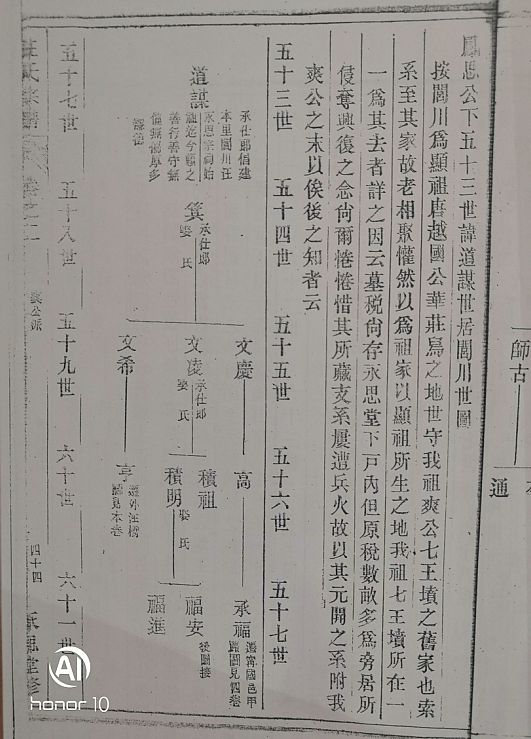 師古
通
鳳思公下五十三世諱道謀世居閭川世圖
按閭川爲顯祖唐越國公華莊爲之地世守我祖爽公七王墳之舊家也索
系至其家故老相聚懽然以爲祖家以顯祖所生之地我祖七王墳所在一
一爲其去者詳之因云墓税尙存永思堂下戸內但原税數畝多爲旁居所
侵奪興復之念尙爾惓惓惜其所藏支系屢遭兵火故以其元開之系附我
爽公之末以俟後之知者云
五十三世 五十四世 五十五世 五十六世 五十七世
道謀
承仕郎倡建
本里閭川汪
永思宗祠始
善行善守無
箕
承仕郎
娶 氏
文慶
高
承福
遷寧國邑甲
文淩
承仕郎
娶 氏
積祖
積明
娶 氏
福安
後圖接
福進
文希
亨
五十七世 五十八世 五十九世 六十世 六十一世
爽公派
四十四
AI
honor 10